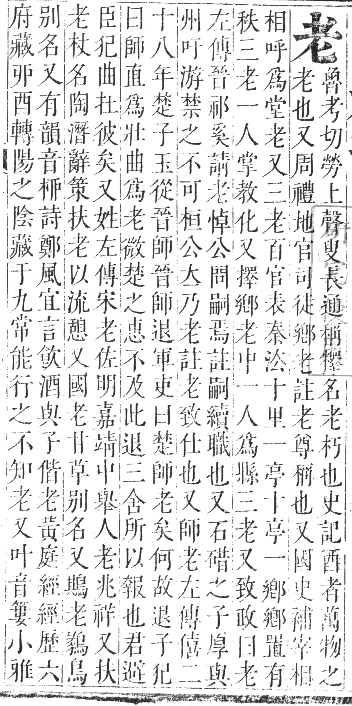 老
魯考切勞上聲叟長通稱釋名老朽也史記酉者萬物之
老也又周禮地官司徒鄉老註老尊稱也又國史補宰相
相呼爲堂老又三老百官表秦法十里一亭十亭一鄉鄉置有
秩三老一人掌教化又擇鄉老中一人爲縣三老又致政曰老
左傳晉祁奚請老悼公問嗣焉註嗣續職也又石碏之子厚與
州吁游禁之不可桓公立乃老註老致仕也又師老左傳僖二
十八年楚子玉從晉師晉師退軍吏曰楚師老矣何故退子犯
曰師直爲壯曲爲老微楚之惠不及此退三舍所以報也君避
臣犯曲在彼矣又姓左傳宋老佐明嘉靖中舉人老兆祥又扶
老杖名陶潛辭策扶老以流憩又國老甘草别名又老鳥
别名又有韻音柳詩鄭風宜言飲酒與子偕老黃庭經經歷六
府藏卯酉轉陽之陰藏于九常能行之不知老又叶音簍小雅